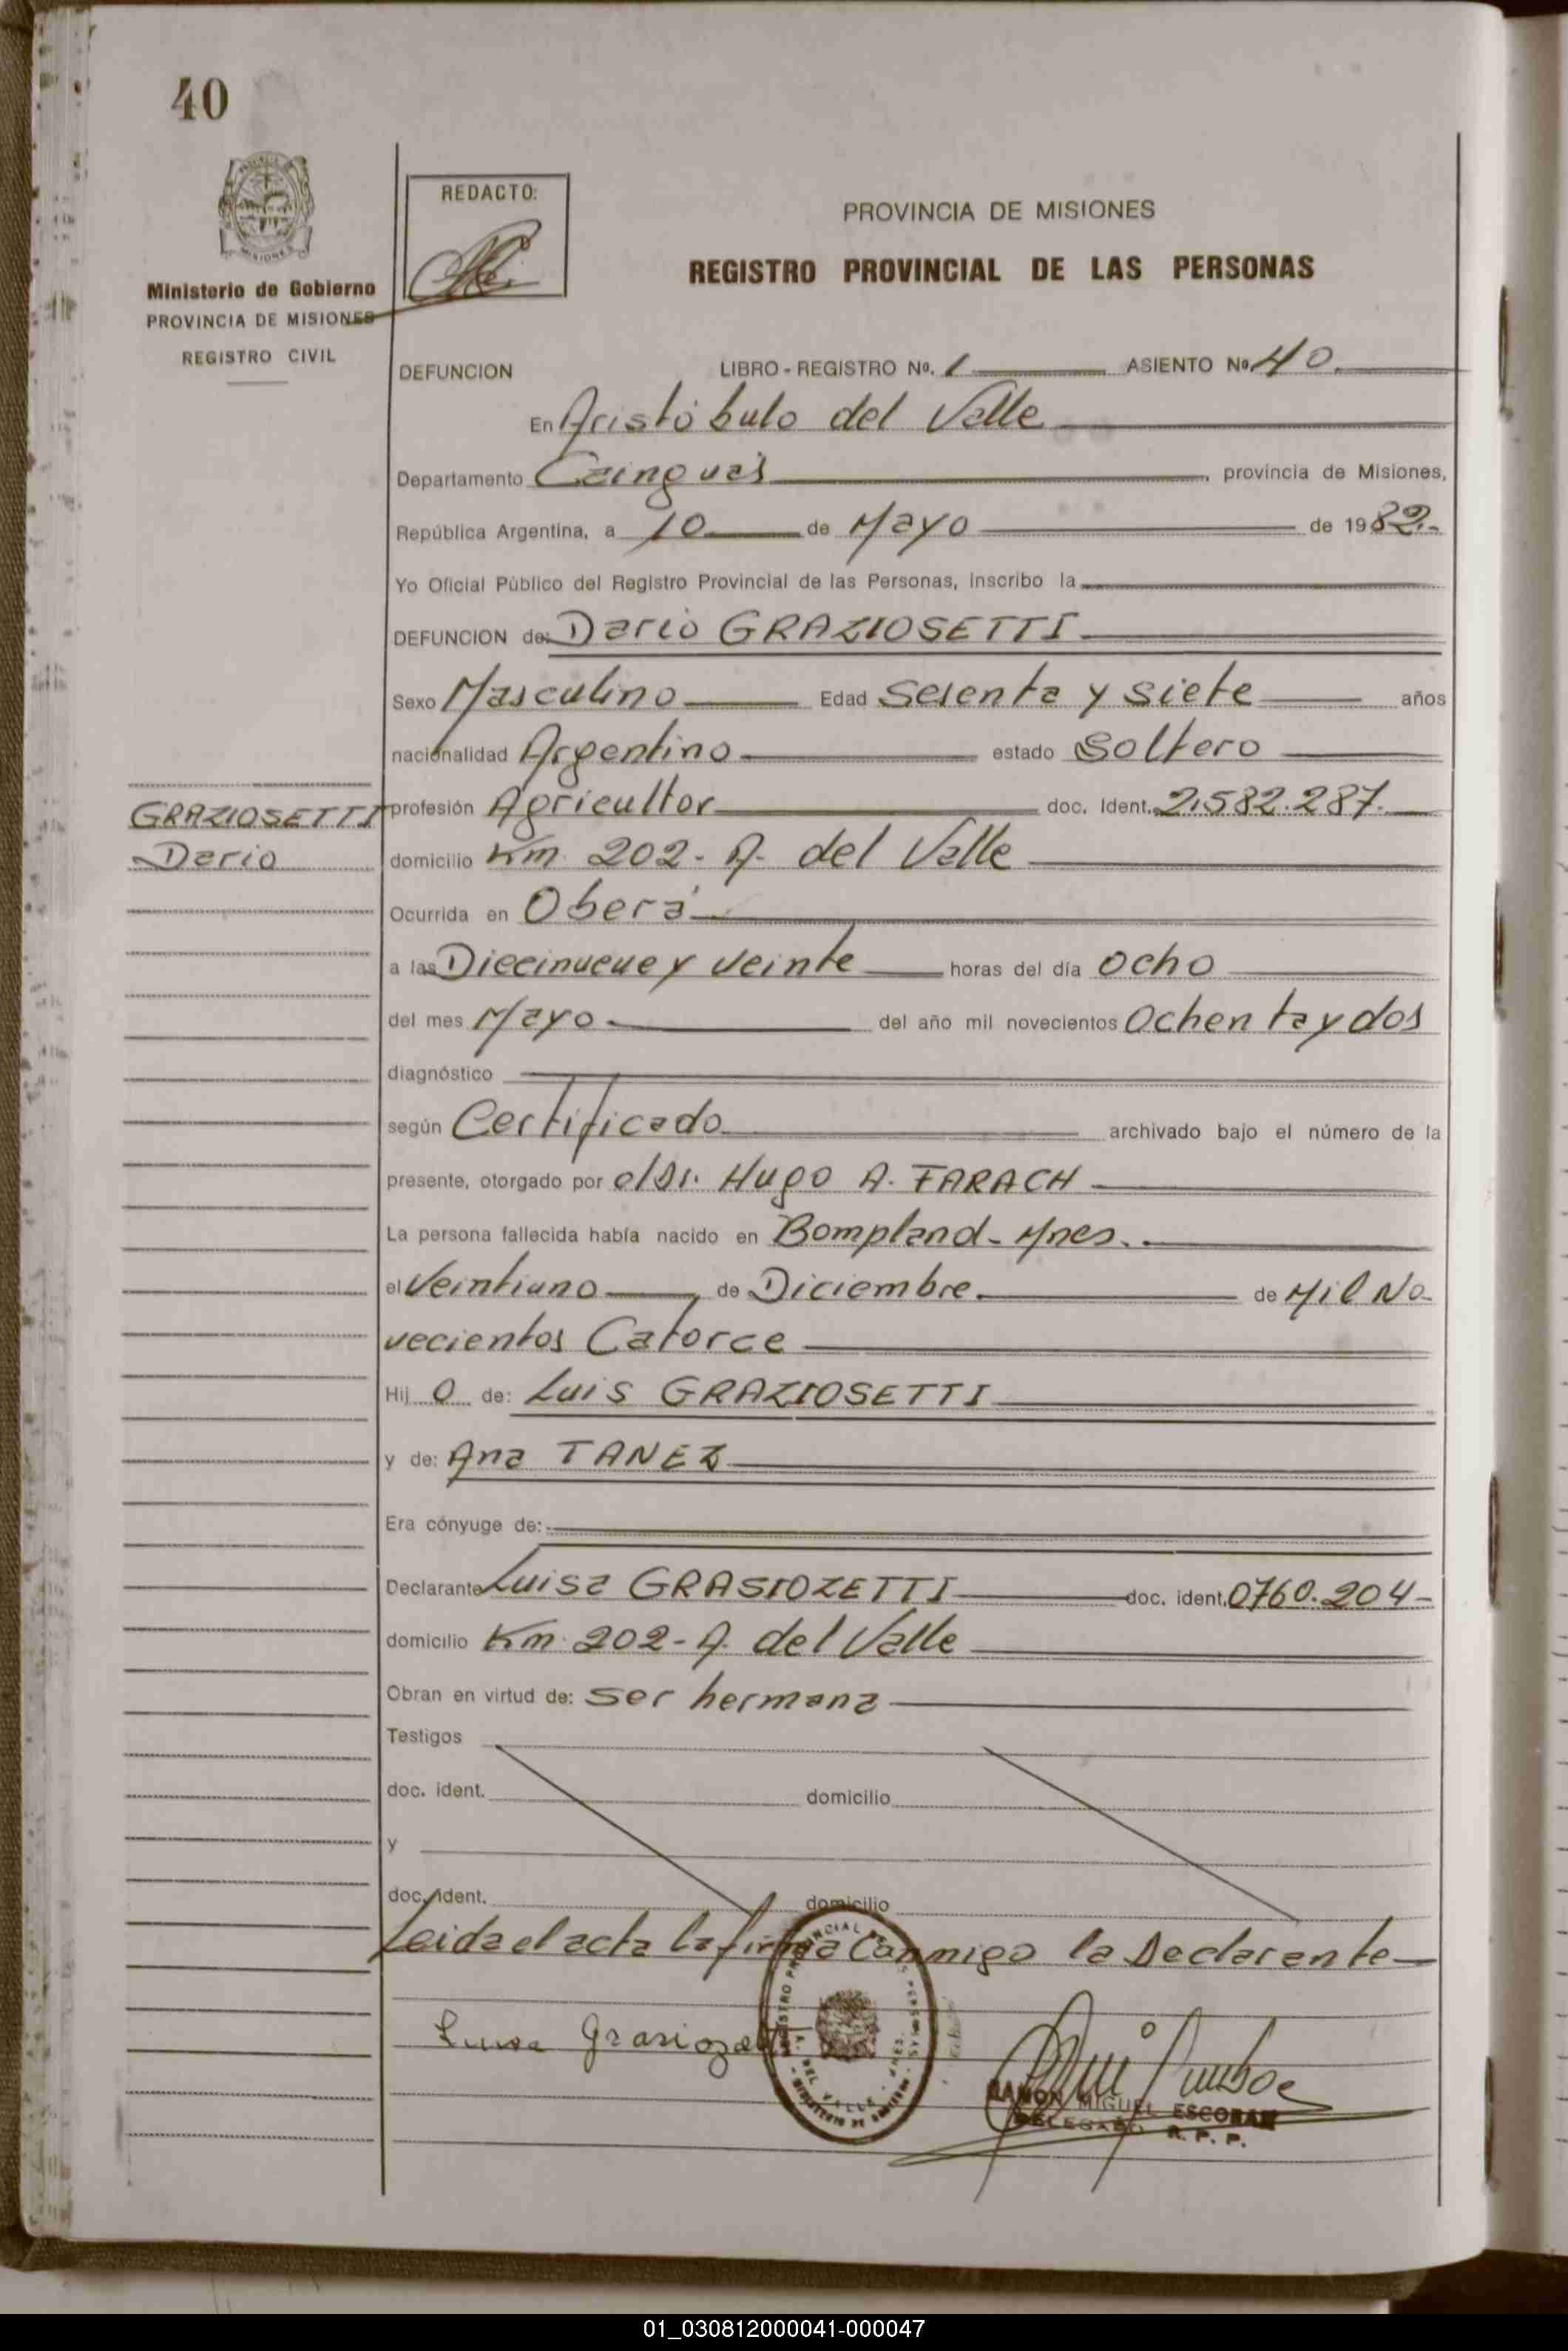 40
REDACTO:
Ministerio de Gobierno
PROVINCIA DE MISIONES
REGISTRO CIVIL
PROVINCIA DE MISIONES
REGISTRO PROVINCIAL DE LAS PERSONAS
DEFUNCION LIBRO - REGISTRO Nº. 1 ASIENTO Nº 40.
En Aristóbulo del Valle
Departamento Cainguás , provincia de Misiones,
República Argentina, a 10 de Mayo de 1982.-
Yo Oficial Público del Registro Provincial de las Personas, inscribo la
DEFUNCION de: Dario GRAZIOSETTI
Sexo Masculino Edad Sesenta y siete años
nacionalidad Argentino estado Soltero
GRAZIOSETTI
Dario
profesión Agricultor doc. Ident. 2.582.287.
domicilio Km. 202 - A. del Valle
Ocurrida en Oberá
a las Diecinueve y veinte horas del día ocho
del mes Mayo del año mil novecientos Ochenta y dos
diagnóstico
según Certificado archivado bajo el número de la
presente, otorgado por el Dr. Hugo A. FARACH
La persona fallecida había nacido en Bompland - Mnes.
el Veintiuno de Diciembre de Mil No
vecientos Catorce
Hij o de: Luis GRAZIOSETTI
y de: Ana TANEZ
Era cónyuge de:
Declarante Luisa GRASIOZETTI doc. ident. 0760.204-
domicilio Km. 202 - A. del Valle
Obran en virtud de: ser hermana
Testigos
doc. ident. domicilio
y
doc. ident. domicilio
Leida el acta la firma Conmigo la Declarante
Luisa
RAMON MIGUEL ESCOBAR
DELEGADO R. P. P.
01_030812000041-000047